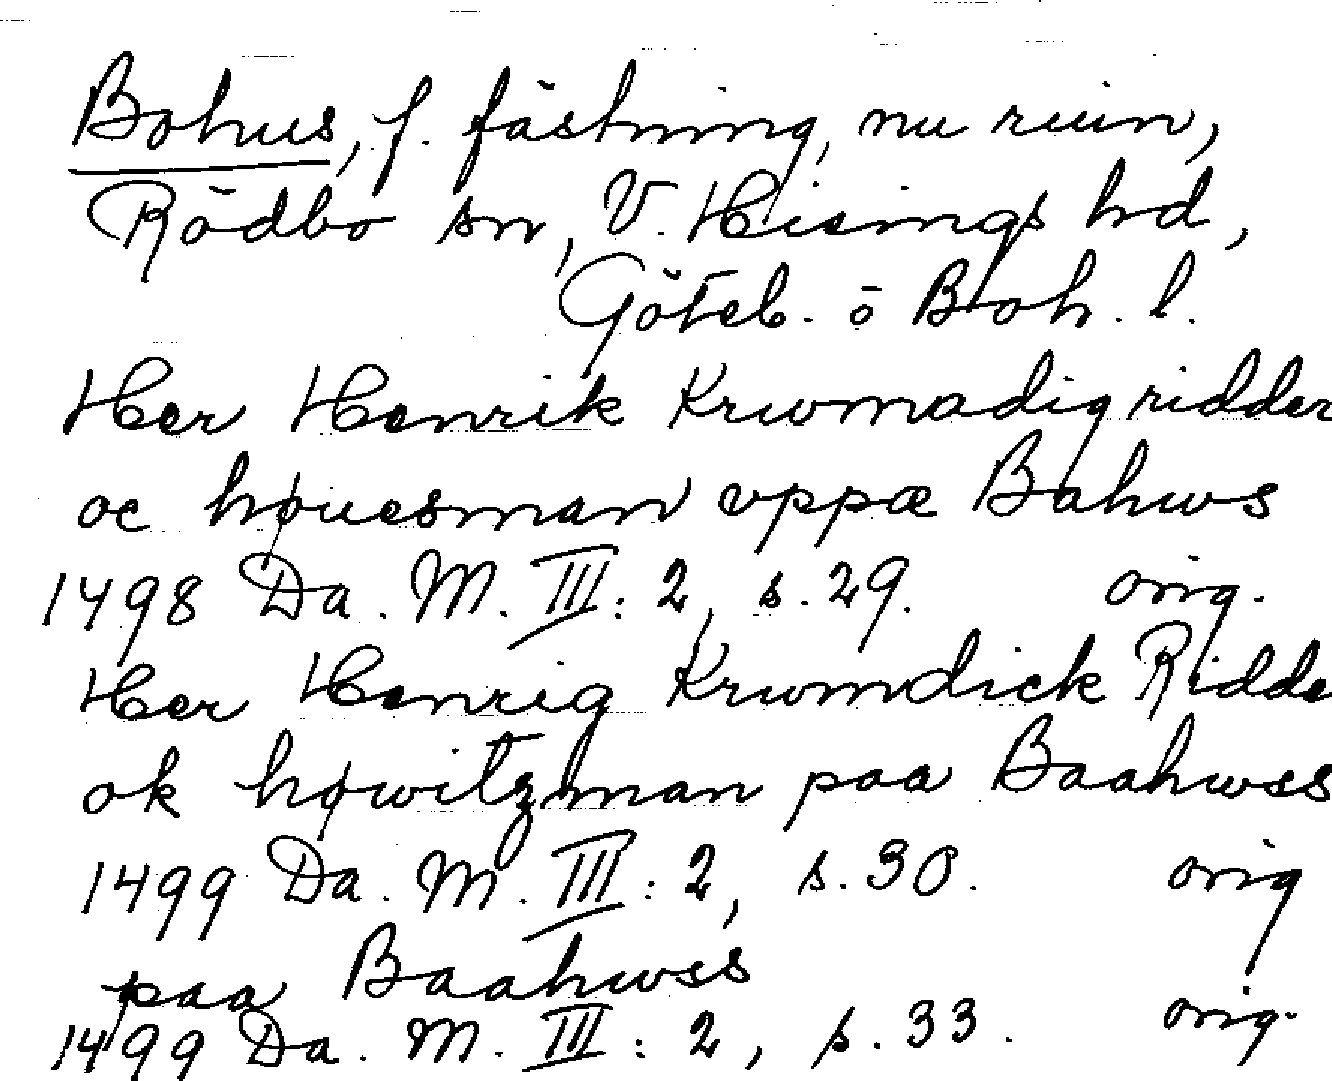 Bohus, f. fästning, nu ruin,
Rödbo sn, V. Hisings hd,
Göteb. o Boh. l.
Her Henrik Krwmadig ridder
oc høuesman vppæ Bahws
1498 Da. M. III: 2, s. 29. orig.
Her Henrig Krwmdick Ridde
ok høwitzman paa Baahwss
1499 Da. M. III: 2, s. 30. orig
paa Baahwss
1499 Da. M. III: 2, s. 33. orig.